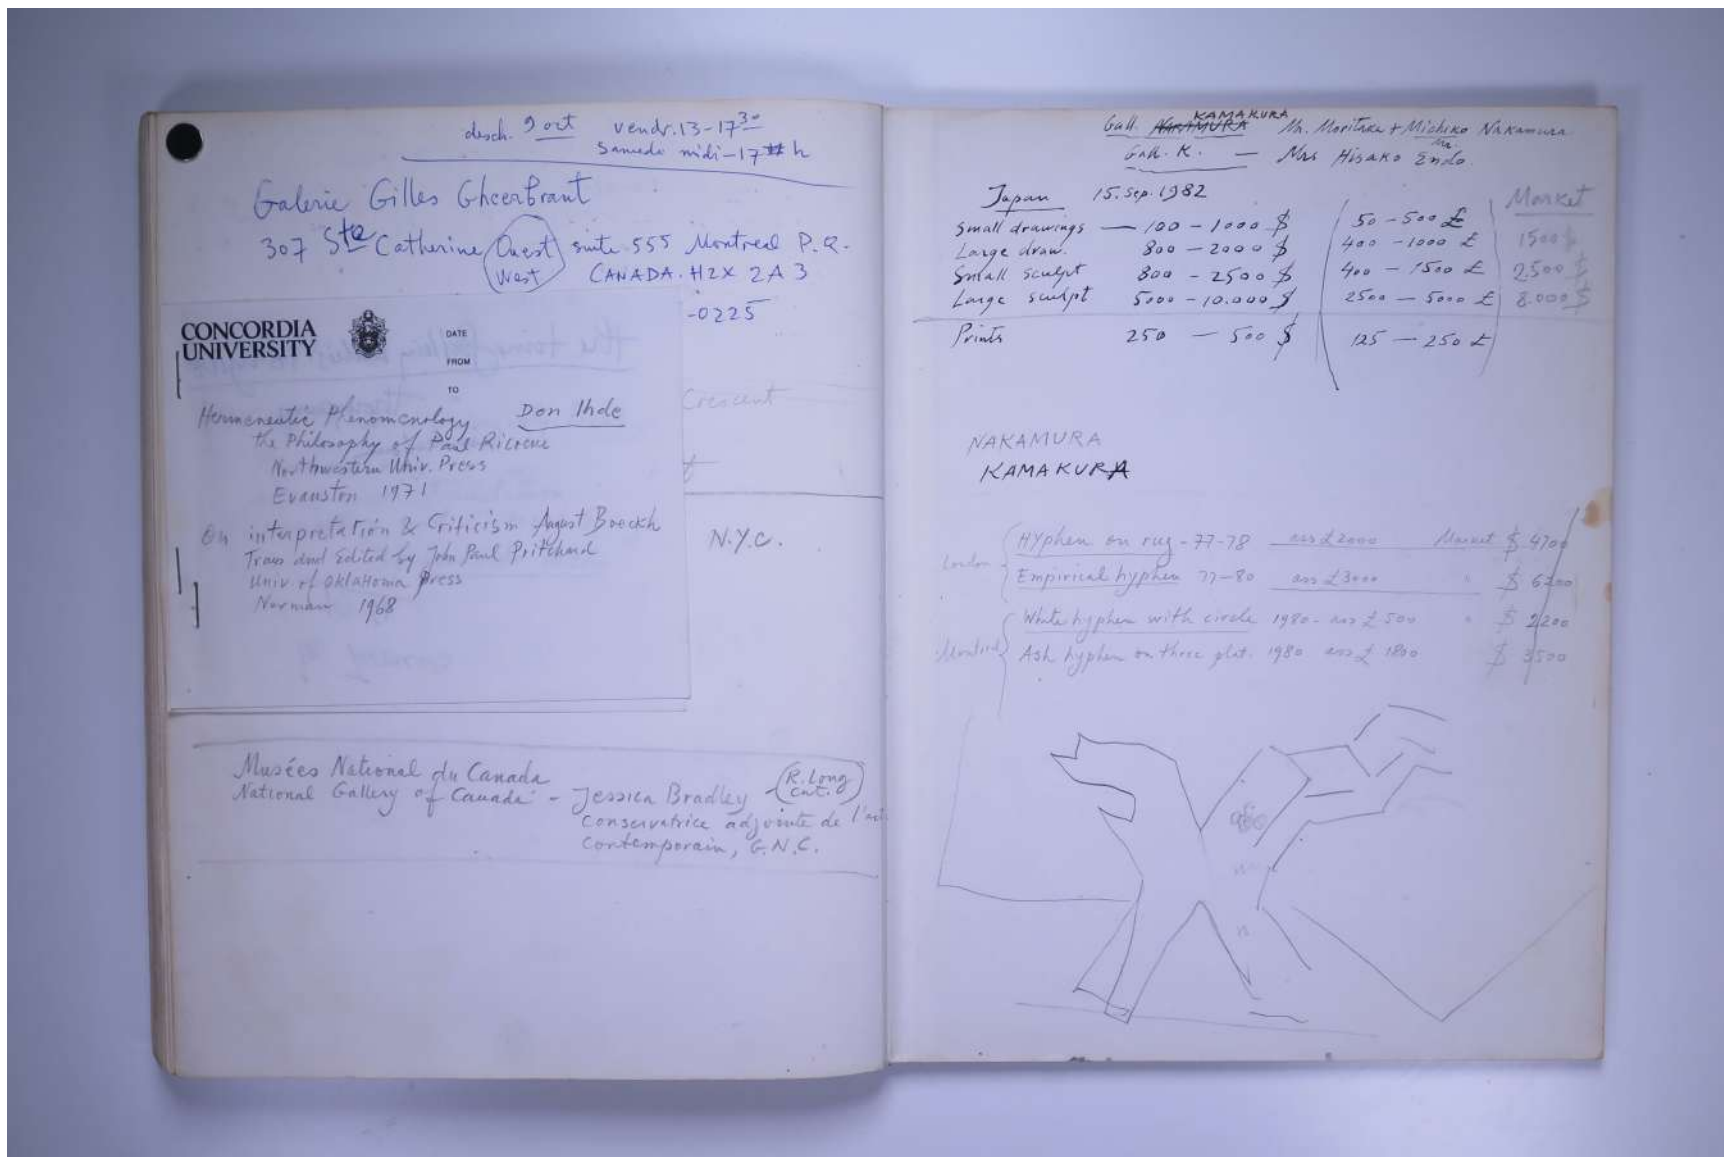 desch. 9 oct vendr. 13-17³⁰
Samedi midi-17 h
Galerie Gilles Gheerbrant
307 Ste Catherine Ouest suite 555 Montreal P.Q.
West CANADA. H2X 2A3
-0225
CONCORDIA
UNIVERSITY
DATE
FROM
TO
Crescent
Hermeneutic Phenomenology Don Ihde
the Philosophy of Paul Ricoeur
Northwestern Univ. Press
Evanston 1971
On interpretation & Criticism August Boeckh
Trans and Edited by John Paul Pritchard
Univ. of Oklahoma Press
Norman 1968
N.Y.C.
Musées National du Canada
National Gallery of Canada - Jessica Bradley (R. Long
cat.)
Conservatrice adjointe de l'art
Contemporain, G.N.C.
KAMAKURA
Gall. NAKAMURA Mr. Moritaka + Michiko Nakamura
Gall. K. — Mrs Hisako Endo.
Japan 15. Sep. 1982 Market
Small drawings — 100 - 1000 $ 50 - 500 £ 1500 $
Large draw. 800 - 2000 $ 400 - 1000 £ 2.500 $
Small sculpt 800 - 2500 $ 400 - 1500 £ 8.000 $
Large sculpt 5000 - 10.000 $ 2500 - 5000 £
Prints 250 - 500 $ 125 - 250 £
NAKAMURA
KAMAKURA
London
Hyphen on rug - 77-78 £ 2000 Market $ 4700
Empirical hyphen 77-80 £ 3000 " $ 6200
White hyphen with circle 1980 - £ 500 " $ 2200
Montreal
Ash hyphen on three plat. 1980 £ 1800 $ 3500